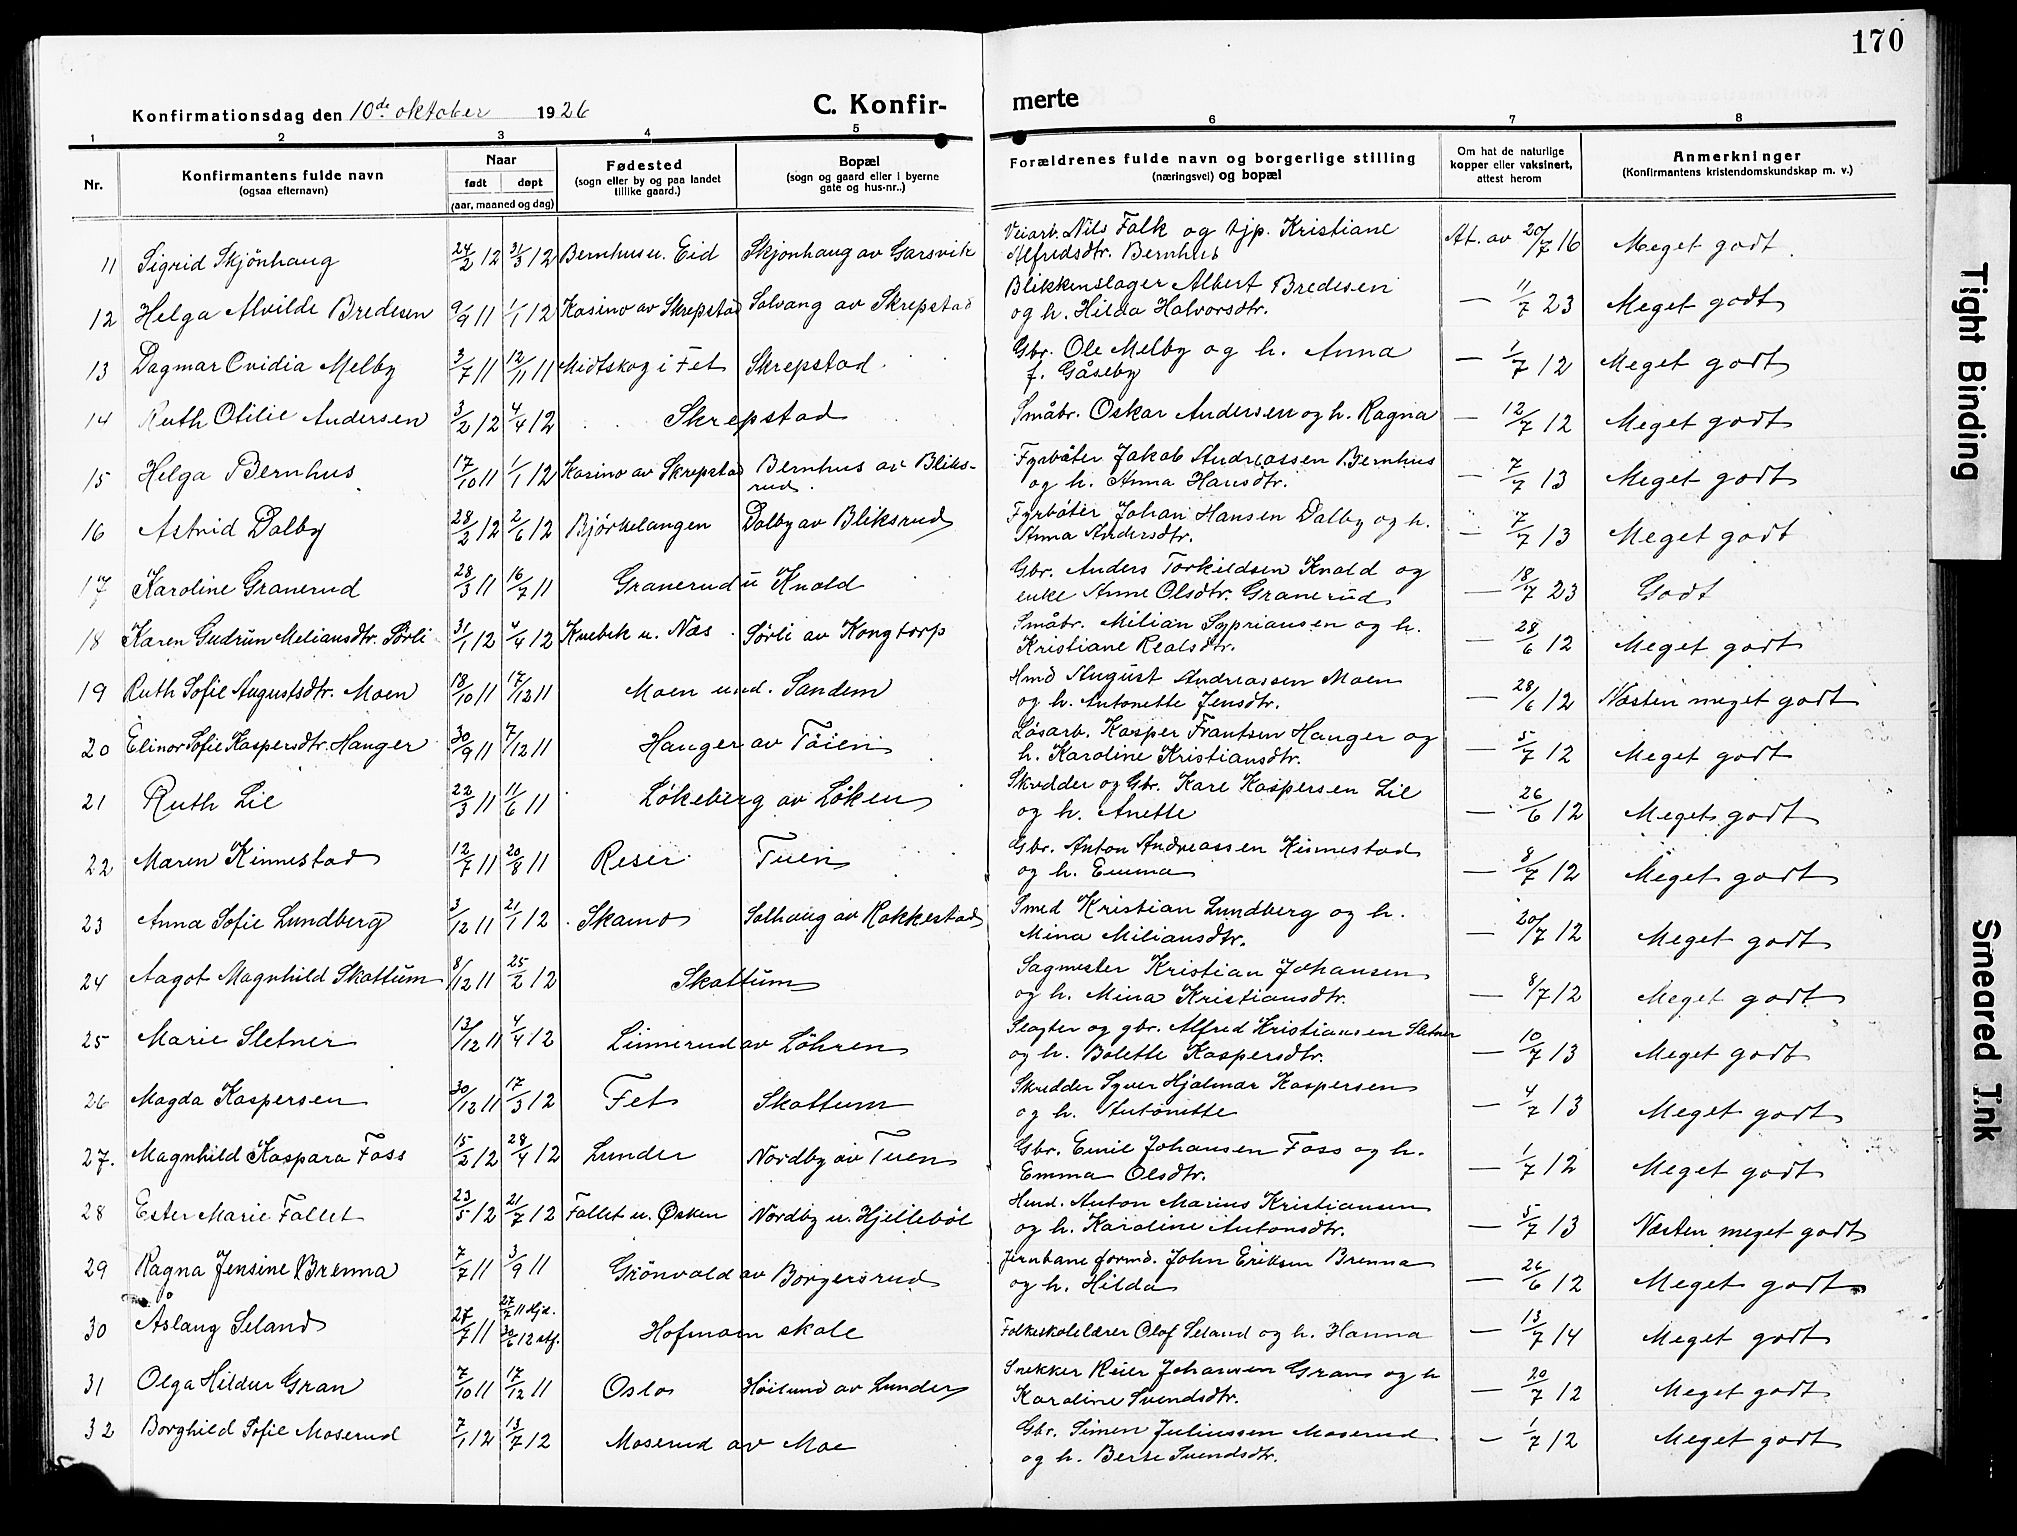 170
Konfirmationsdag den 10de oktober 1926
C. Konfir-
merte
1 2 3 4 5 6 7 8
Nr.
Konfirmantens fulde navn
(ogsaa efternavn)
Naar
født døpt
(aar, maaned og dag)
Fødested
(sogn eller by og paa landet
tillike gaard.)
Bopæl
(sogn og gaard eller i byerne
gate og hus-nr..)
Forældrenes fulde navn og borgerlige stilling
(næringsvei) og bopæl
Om hat de naturlige
kopper eller vaksinert,
attest herom
Anmerkninger
(Konfirmantens kristendomskundskap m. v.)
11 Sigrid Skjönhaug 24/2 12 31/3 12 Bernhus u. Eid Skjönhaug av Garsvik Veiarb. Nils Falk og tjp. Kristiane At. av 20/7 16 Meget godt
Alfredsdtr. Bernhus
12 Helga Alvilde Bredesen 9/9 11 1/1 12 Kasino av Skrepstad Solvang av Skrepstad Blikkenslager Albert Bredesen — 11/7 23 Meget godt
og h. Hilda Halvorsdtr.
13 Dagmar Ovidia Melby 3/7 11 12/11 11 Midtskog i Fet Skrepstad Gbr. Ole Melby og h. Anna — 1/7 12 Meget godt
f. Gåseby
14 Ruth Otilie Andersen 3/2 12 4/4 12 Skrepstad Småbr. Oskar Andersen og h. Ragna — 12/7 12 Meget godt
15 Helga Bernhus 17/10 11 1/1 12 Kasino av Skrepstad Bernhus av Bliks- Fyrböter Jakob Andreassen Bernhus — 7/7 13 Meget godt
rud. og h. Anna Hansdtr.
16 Astrid Dalby 28/2 12 2/6 12 Björkelangen Dalby av Bliksrud Fyrböter Johan Hansen Dalby og h. — 7/7 13 Meget godt
Anna Andersdtr.
17 Karoline Granerud 28/3 11 16/7 11 Granerud u Knold Gbr. Anders Torkildsen Knold og — 18/7 23 Godt
enke Anne Olsdtr. Granerud
18 Karen Gudrun Meliansdtr. Sörli 31/1 12 4/4 12 Kuebek u. Næs Sörli av Kongtorp Småbr. Milian Sypriansen og h. — 28/6 12 Meget godt
Kristiane Realsdtr.
19 Ruth Sofie Augustsdtr. Moen 18/10 11 17/12 11 Moen und. Sandem Hmd August Andreassen Moen — 28/6 12 Næsten meget godt
og h. Antonette Jensdtr.
20 Elinor Sofie Kaspersdtr. Hanger 30/9 11 7/12 11 Hanger av Töien Løsarb. Kasper Frantsen Hanger og — 5/7 12 Meget godt
h. Karoline Kristiansdtr.
21 Ruth Lie 22/3 11 11/6 11 Lökeberg av Löken Skredder og Gbr. Kare Kaspersen Lie — 26/6 12 Meget godt
og h. Anette
22 Maren Kinnestad 12/7 11 20/8 11 Reser Tuen Gbr. Anton Andreassen Kinnestad — 8/7 12 Meget godt
og h. Emma
23 Anna Sofie Lundberg 3/12 11 21/1 12 Skamo Solhaug av Rakkestad Smed Kristian Lundberg og h. — 20/7 12 Meget godt
Mina Miliansdtr.
24 Aagot Magnhild Skattum 8/12 11 25/2 12 Skattum Sagmester Kristian Johansen — 8/7 12 Meget godt
og h. Mina Kristiansdtr.
25 Marie Sletner 13/12 11 4/4 12 Linnerud av Löhren Slagter og gbr. Alfred Kristiansen Sletner — 10/7 13 Meget godt
og h. Bolette Kaspersdtr.
26 Magda Kaspersen 30/12 11 17/3 12 Fet Skattum Skredder Syver Hjalmar Kaspersen — 4/7 13 Meget godt
og h. Antonette
27. Magnhild Kaspara Foss 15/2 12 28/4 12 Lunder Nordby av Tuen Gbr. Emil Johansen Foss og h. — 1/7 12 Meget godt
Emma Olsdtr.
28 Ester Marie Fallet 23/5 12 21/7 12 Fallet u. Ørken Nordby u. Hjellebøl Hmd. Anton Marius Kristiansen — 5/7 13 Næsten meget godt
og h. Karoline Antonsdtr.
29 Ragna Jensine Brenna 7/7 11 3/9 11 Grönvold av Borgersrud Jernbane formd. John Eriksen Brenna — 26/6 12 Meget godt
og h. Hilda
30 Åslaug Seland 27/7 11 27/7 11 hjd. 30/6 12 stf. Hofmoen skole Folkeskolelærer Olaf Seland og h. Hanna — 13/7 14 Meget godt
31 Olga Hildur Gran 7/10 11 17/12 11 Oslo Höilund av Lunder Snekker Reier Johansen Gran og h — 20/7 12 Meget godt
Karoline Svendsdtr.
32 Borghild Sofie Moserud 7/1 12 13/7 12 Moserud av Moe Gbr. Simen Juliussen Moserud — 1/7 12 Meget godt
og h. Berte Svendsdtr.
Tight Binding
Smeared Ink